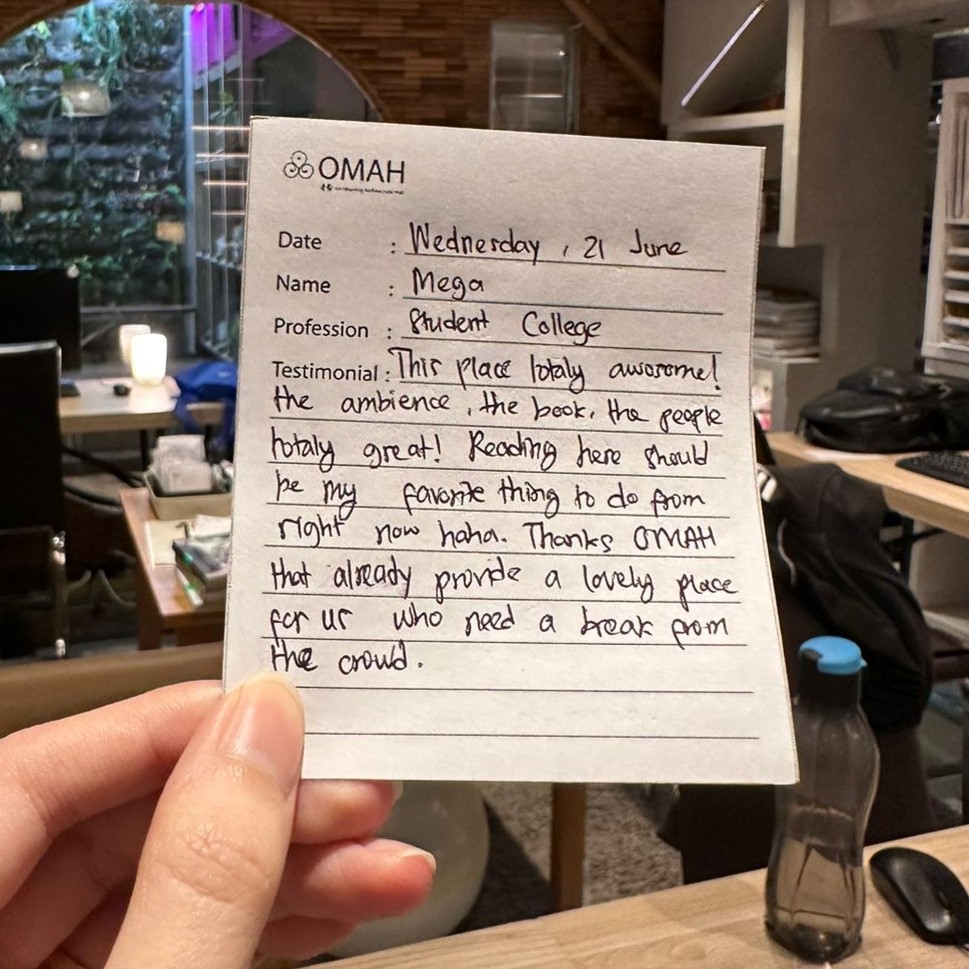 OMAH
Date : Wednesday, 21 June
Name : Mega
Profession : Student College
Testimonial : This place totaly awosome!
the ambience, the book, the people
totaly great! Reading here should
be my favorite thing to do from
right now haha. Thanks OMAH
that already provide a lovely place
for us who need a break from
the crowd.